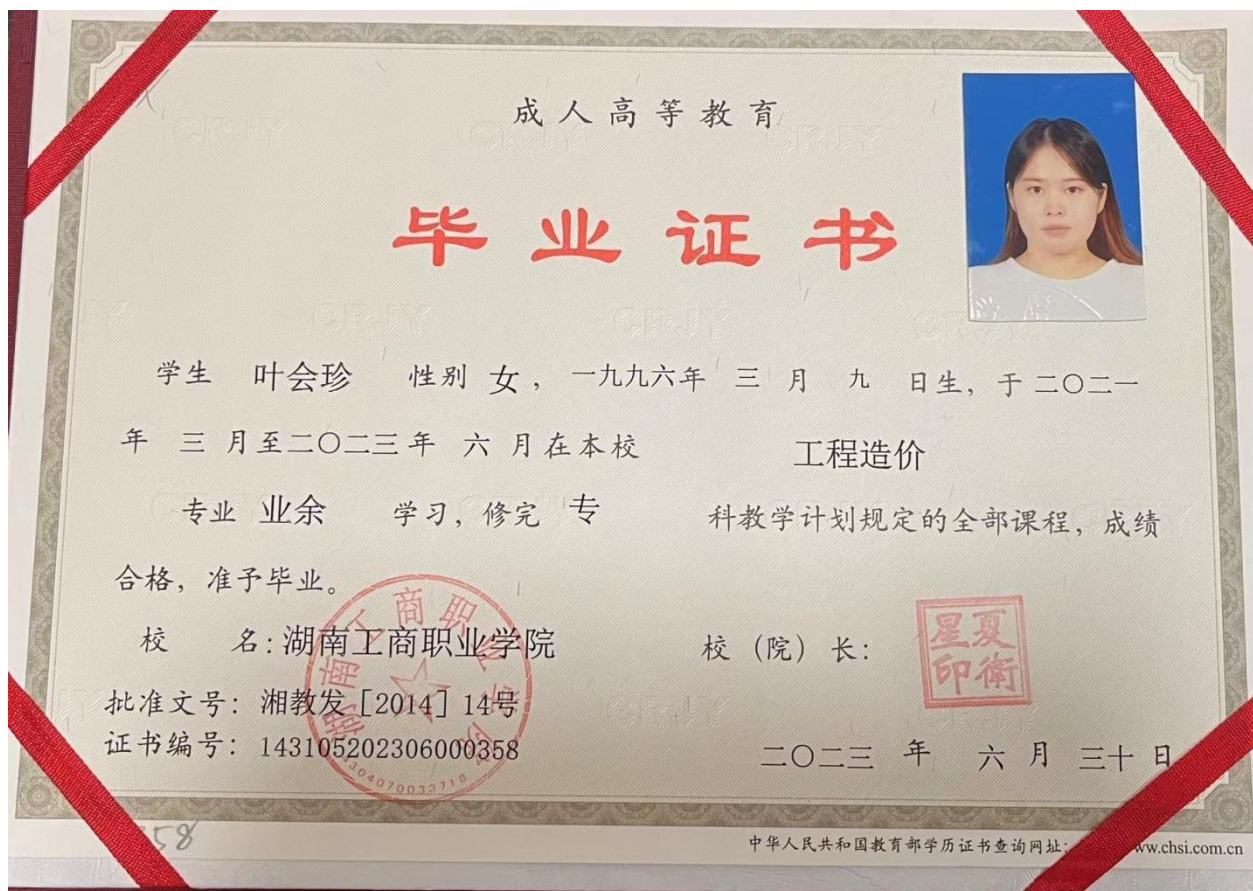 成人高等教育
毕业证书
学生 叶会珍 性别 女，一九九六年 三 月 九 日生，于二〇二一
年 三 月至二〇二三年 六 月在本校 工程造价
专业 业余 学习，修完 专 科教学计划规定的全部课程，成绩
合格，准予毕业。
校 名：湖南工商职业学院 校（院）长：
夏衛星印
批准文号：湘教发［2014］14号
证书编号：143105202306000358
二〇二三 年 六 月 三十 日
湖南工商职业学院
4304070033718
58
中华人民共和国教育部学历证书查询网址： www.chsi.com.cn
CRJY